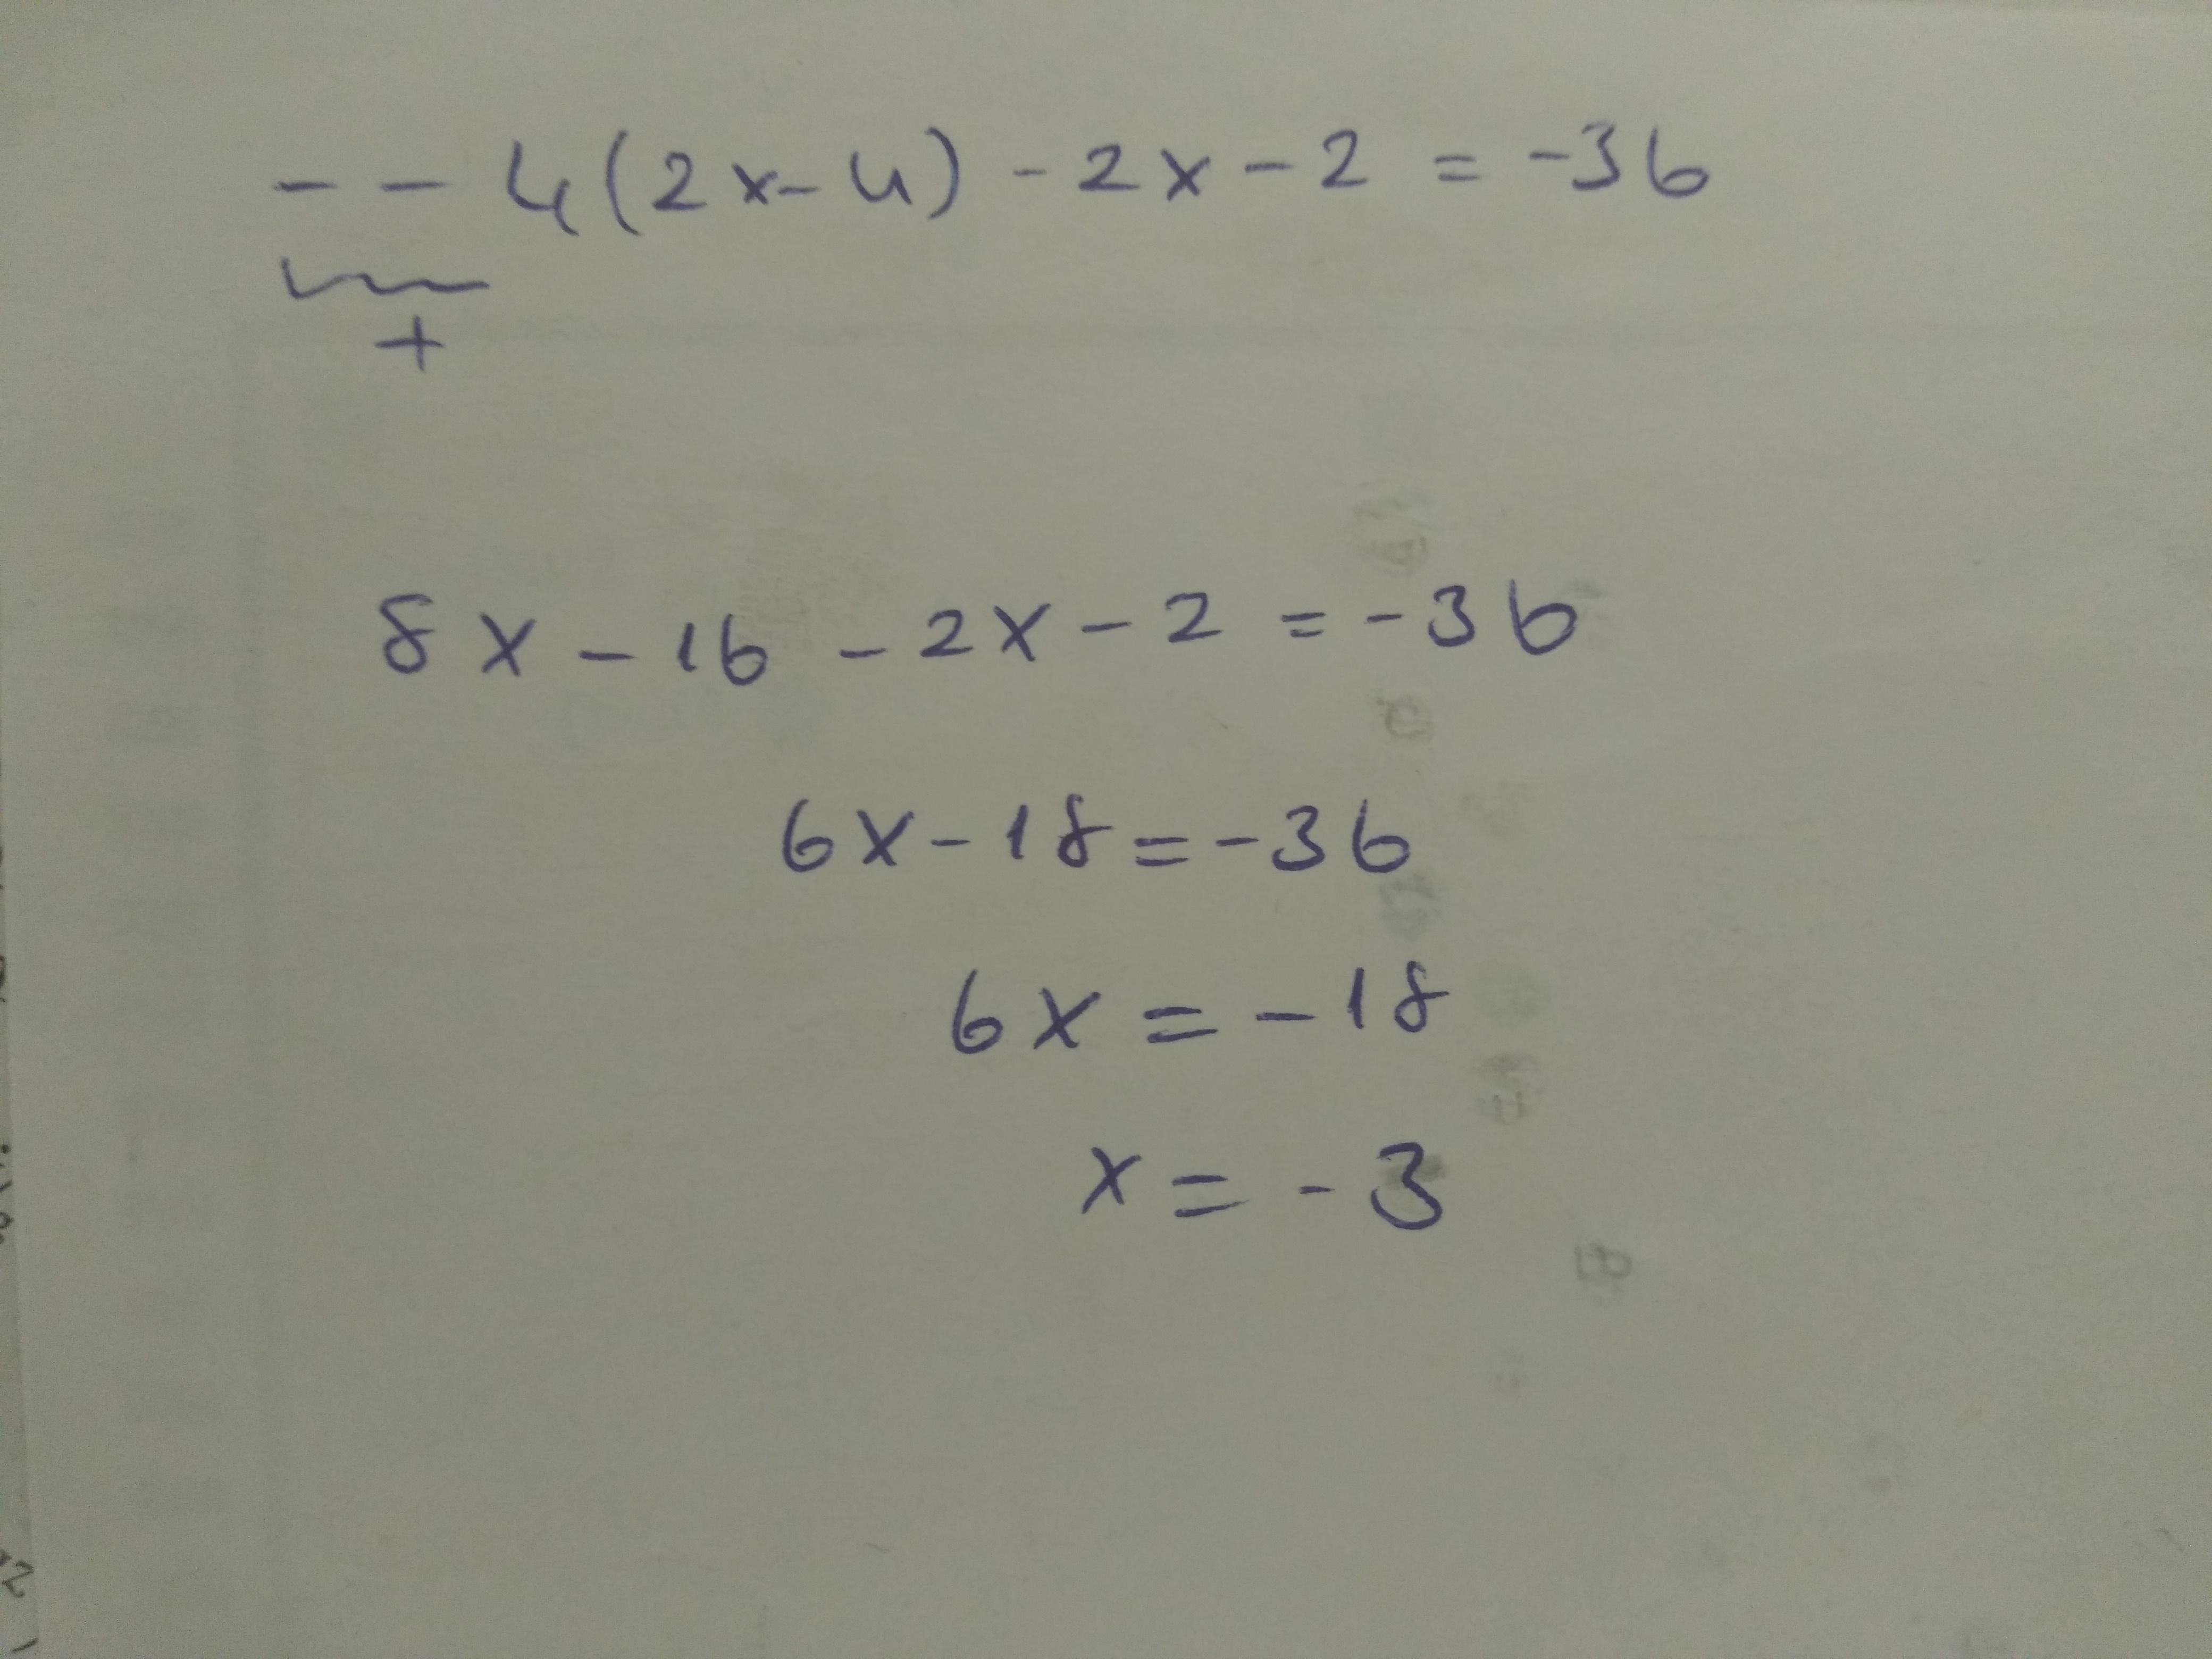 - - 4(2x-4) - 2x - 2 = -36
+
8x - 16 - 2x - 2 = -36
6x - 18 = -36
6x = -18
x = -3